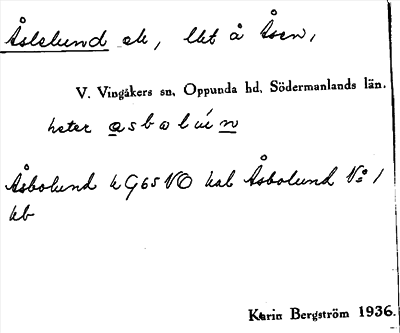 Åslelund ek, lht å Åsen,
V. Vingåkers sn, Oppunda hd, Södermanlands län.
heter asbolúin
Åsbolund k G65 NO kab Åsbolund No 1
kb
Karin Bergström 1936.